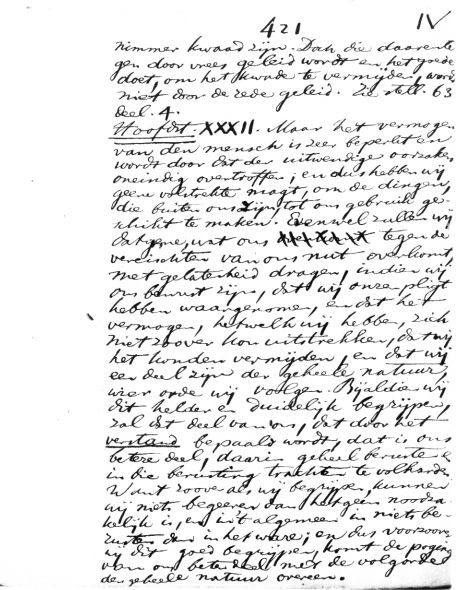 421 IV
nimmer kwaad zijn. Doch die daarente
gen door vrees geleid wordt en het goede
doet, om het kwade te vermijden, word
niet door de rede geleid. Zie stell. 63
deel. 4.
Hoofdst. XXXII. Maar het vermogen
van den mensch is zeer beperkt en
wordt door dat der uitwendige oorzaken
oneindig overtroffen; en dus hebben wij
geene volstrekte magt, om de dingen,
die buiten ons zijn, tot ons gebruik ge-
schikt te maken. Evenwel zullen wij
datgene, wat ons tegen de
vereischten van ons nut overkomt,
met gelatenheid dragen, indien wij
ons bewust zijn, dat wij onze pligt
hebben waargenomen, en dat het
vermogen, hetwelk wij hebben, zich
niet zoover kon uitstrekken, dat wij
het konden vermijden, en dat wij
een deel zijn der geheele natuur,
wier orde wij volgen. Bijaldien wij
dit helder en duidelijk begrijpen,
zal dat deel van ons, dat door het
verstand bepaald wordt, dat is ons
betere deel, daarin geheel berusten e
in die berusting trachten te volharden
Want zoover als wij begrijpen, kunnen
wij niets begeeren dan hetgeen noodza
kelijk is, en in't algemeen in niets be-
rusten dan in het ware; en dus voorzoover
wij dit goed begrijpen, komt de poging
van ons beter deel met de volgorde
der geheele natuur overeen.